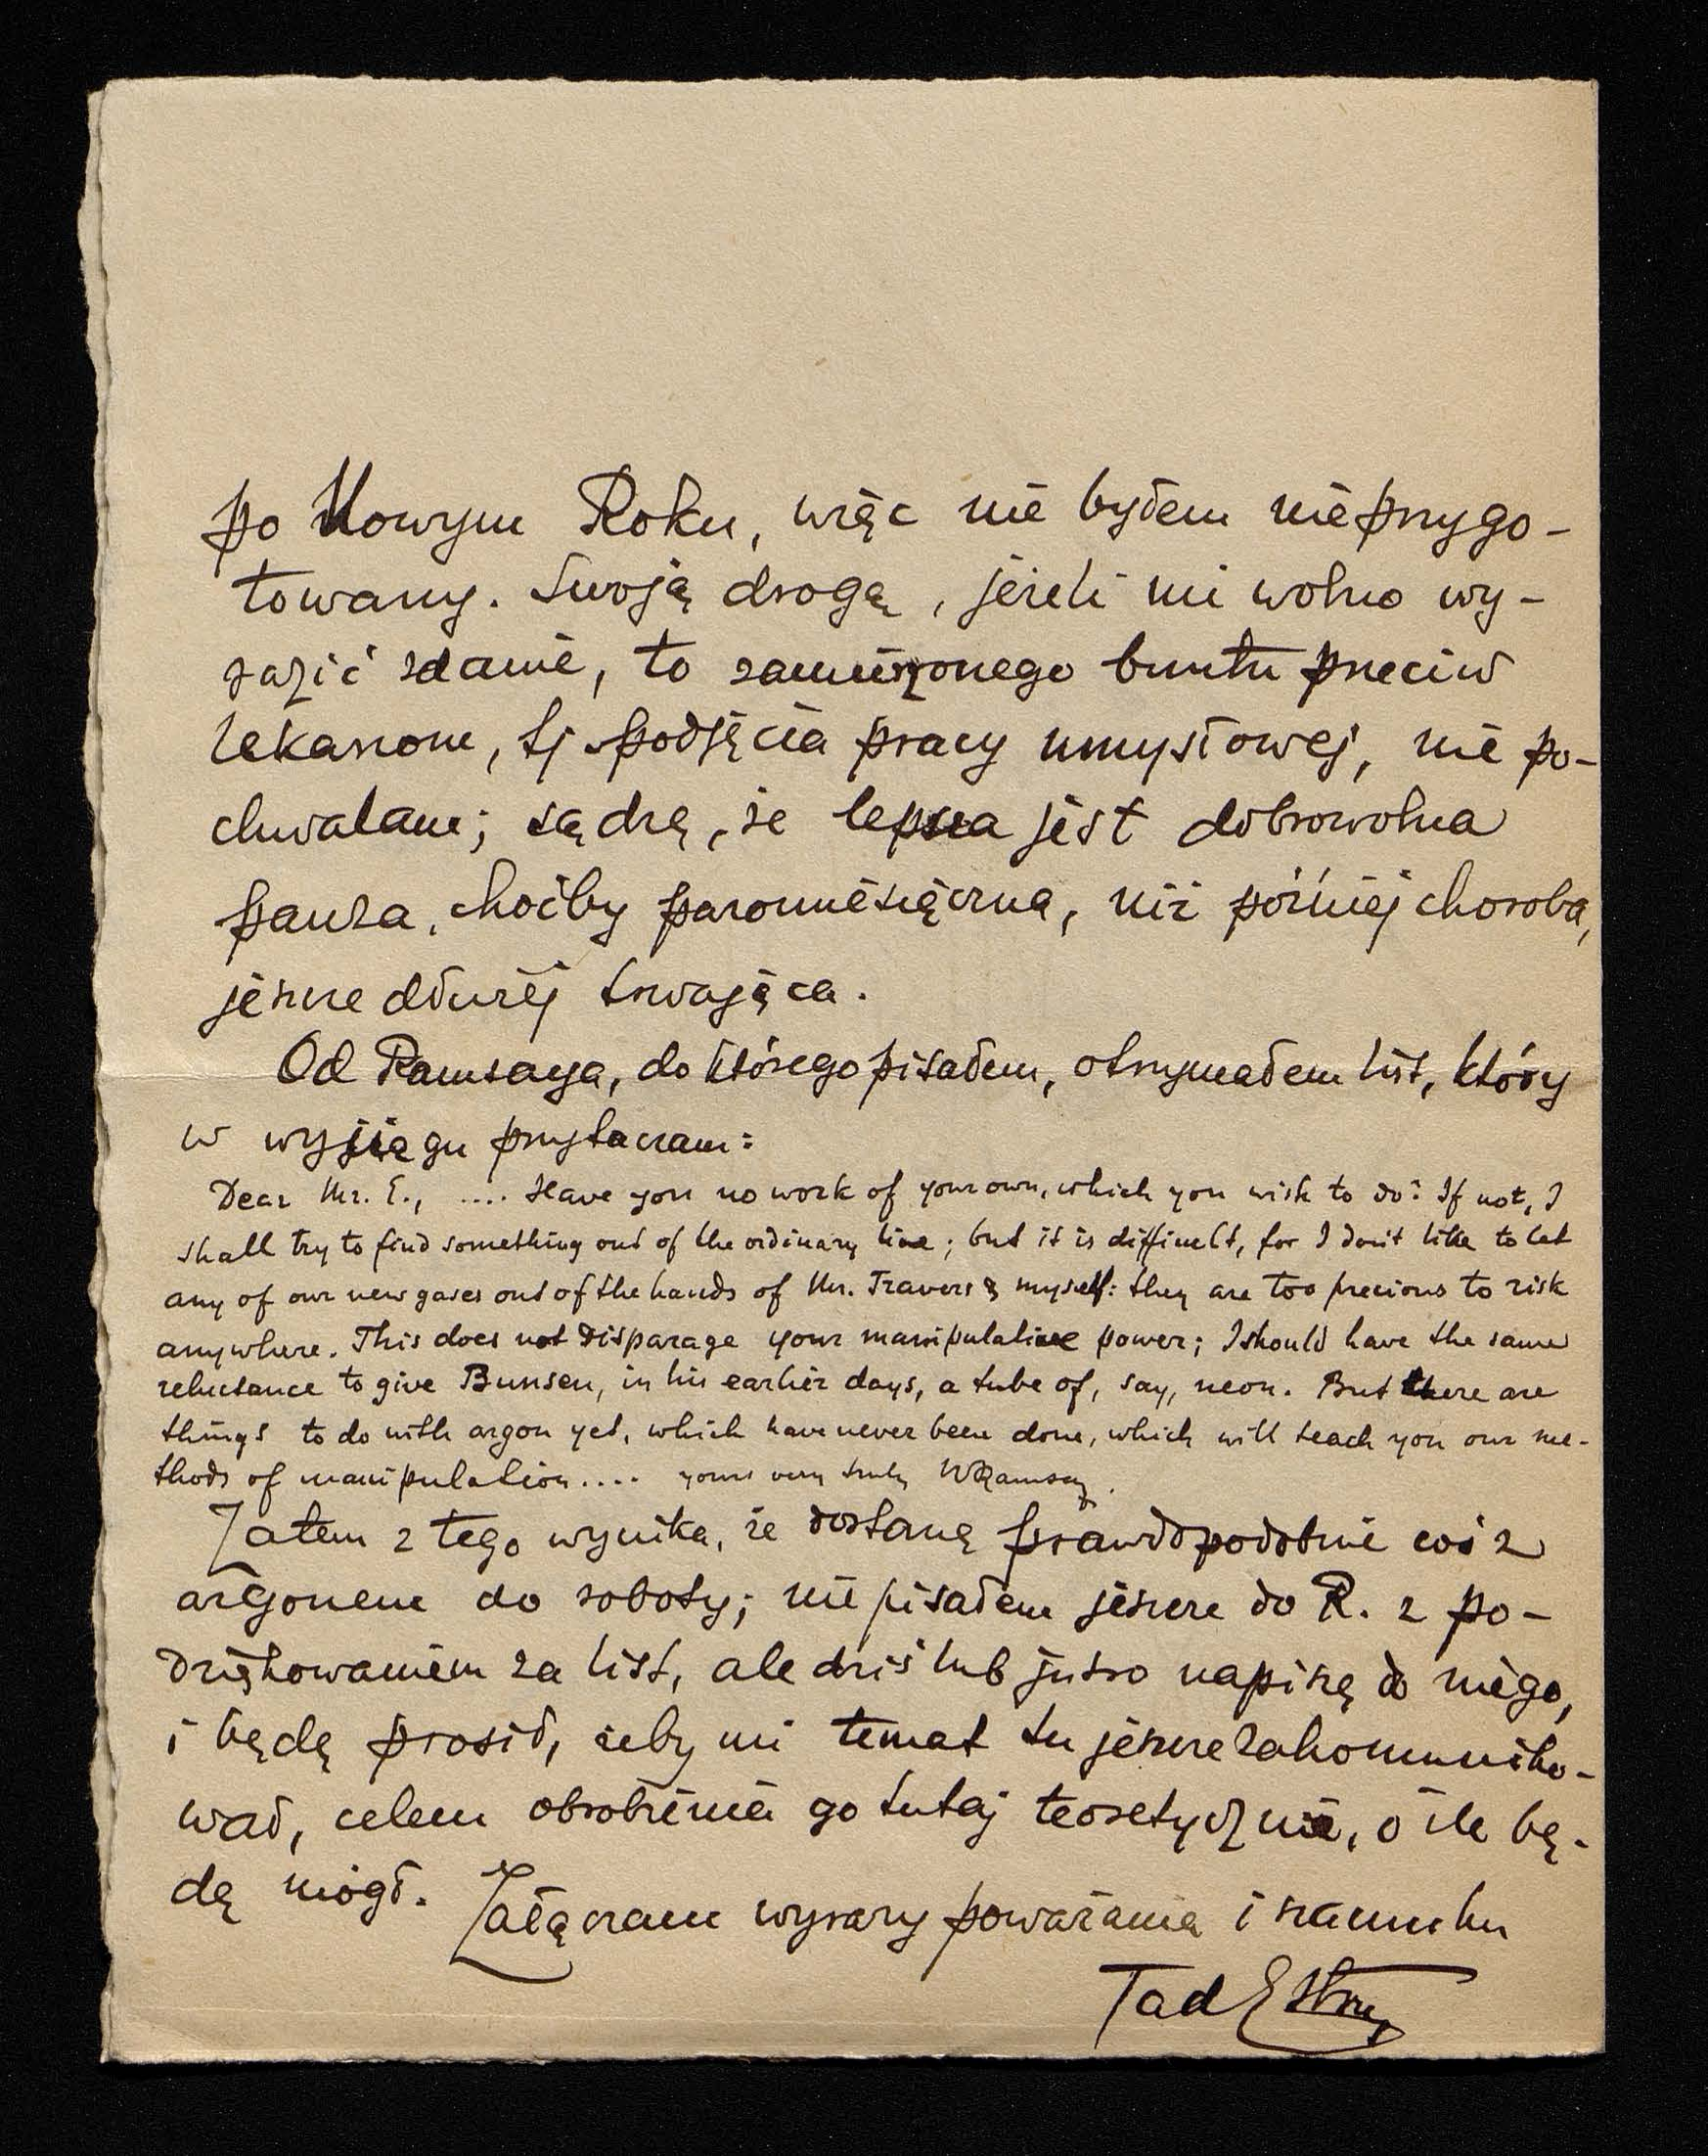 po Nowym Roku, więc nie byłem nieprzygo-
towany. Swoją drogą, jeżeli mi wolno wy-
razić zdanie, to zamierzonego buntu przeciw
lekarzom, tj podjęcia pracy umysłowej, nie po-
chwalam; sądzę, że lepsza jest dobrowolna
pauza, choćby paromiesięczna, niż później choroba,
jeszcze dłużej trwająca.
Od Ramsaya, do którego pisałem, otrzymałem list, który
w wyjęgu przytaczam:
Dear Mr. E., .... Have you no work of your own, which you wish to do? If not, I
shall try to find something out of the ordinary line; but it is difficult, for I don't like to let
any of our new gases out of the hands of Mr. Travers & myself: they are too precious to risk
anywhere. This does not disparage your manipulative power; I should have the same
reluctance to give Bunsen, in his earlier days, a tube of, say, neon. But there are
things to do with argon yet, which have never been done, which will teach you our me-
thods of manipulation.... yours very truly WRamsay.
Zatem z tego wynika, że dostanę prawdopodobnie coś z
argonem do roboty; nie pisałem jeszcze do R. z po-
dziękowaniem za list, ale dziś lub jutro napiszę do niego,
i będę prosił, żeby mi temat tu jeszcze zakomuniko-
wał, celem obrobienia go tutaj teoretycznie, o ile bę-
dę mógł. Załączam wyrazy poważania i szacunku
Tad Estr